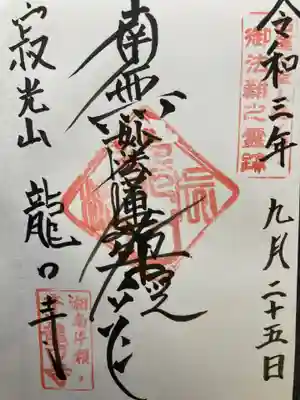 令和三年 九月二十五日
御法難之霊跡
南無妙法蓮華経
寂光山 龍口寺
湘南片瀬